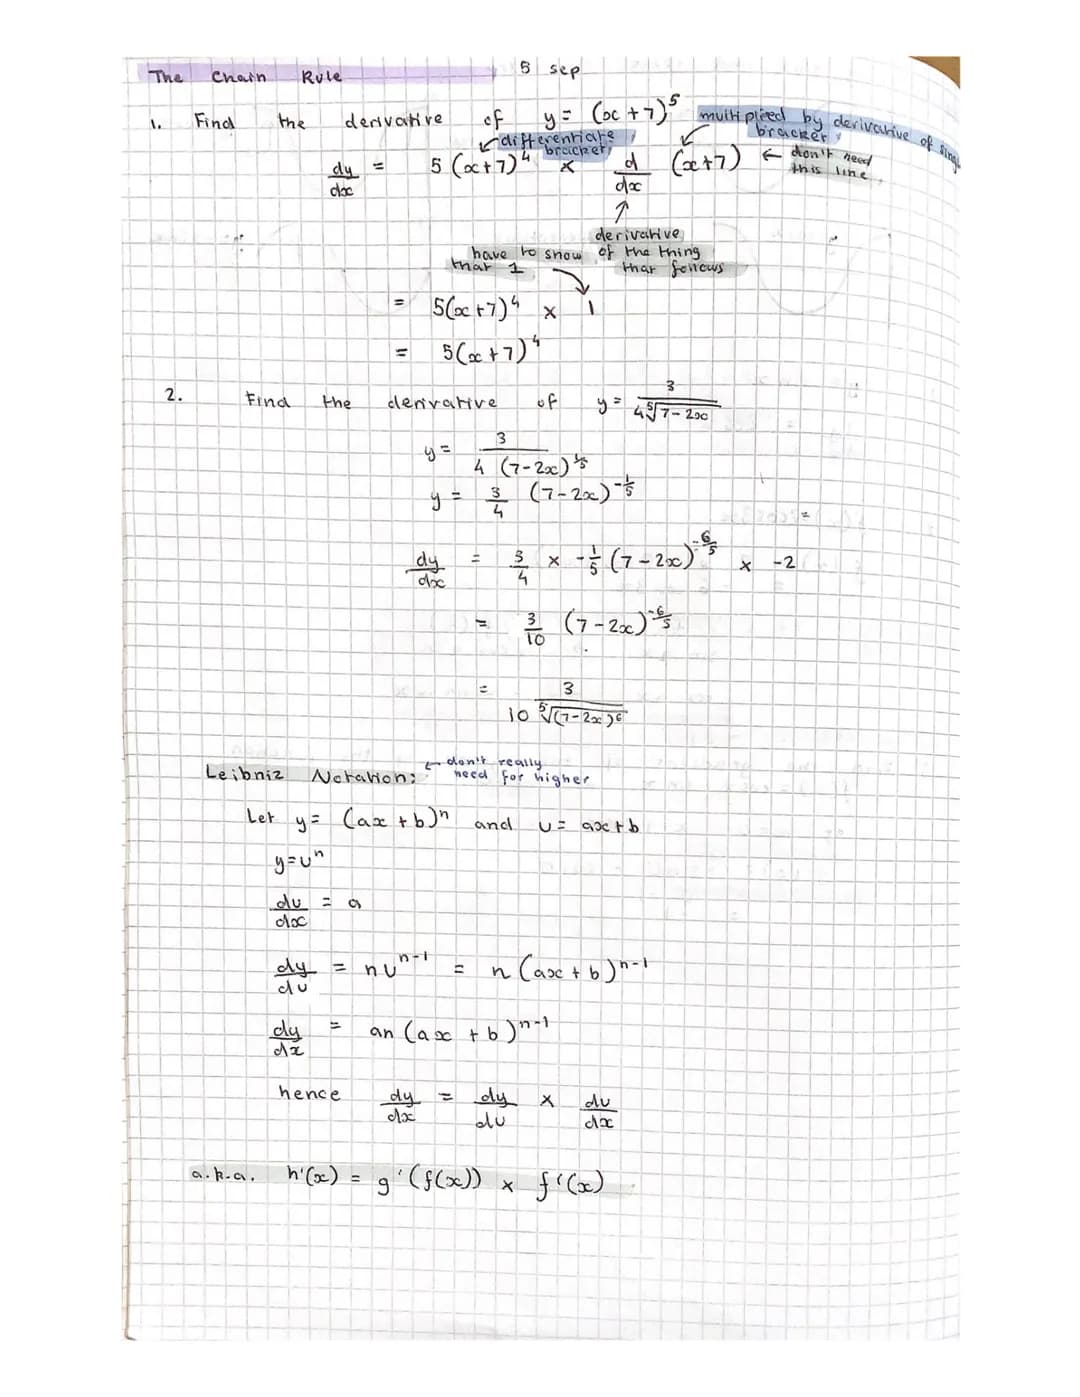 The Chain Rule 5 sep
1. Find the derivative of y = (x+7)⁵
differentiate bracket
multiplied by derivative of single bracket
dy/dx = 5(x+7)⁴ × d/dx (x+7) ← don't need this line
↑
derivative of the thing that follows
have to show that 1
= 5(x+7)⁴ × 1
= 5(x+7)⁴
2. Find the derivative of y = 3/(4 ⁵√(7-2x))
y = 3/(4 (7-2x)^(1/5))
y = 3/4 (7-2x)^(-1/5)
dy/dx = 3/4 × -1/5 (7-2x)^(-6/5) × -2
= 3/10 (7-2x)^(-6/5)
= 3/(10 ⁵√((7-2x)⁶))
Leibniz Notation: ← don't really need for higher
Let y = (ax+b)ⁿ and u = ax+b
y=uⁿ
du/dx = a
dy/du = nuⁿ⁻¹ = n(ax+b)ⁿ⁻¹
dy/dx = an(ax+b)ⁿ⁻¹
hence dy/dx = dy/du × du/dx
a.k.a. h'(x) = g'(f(x)) × f'(x)